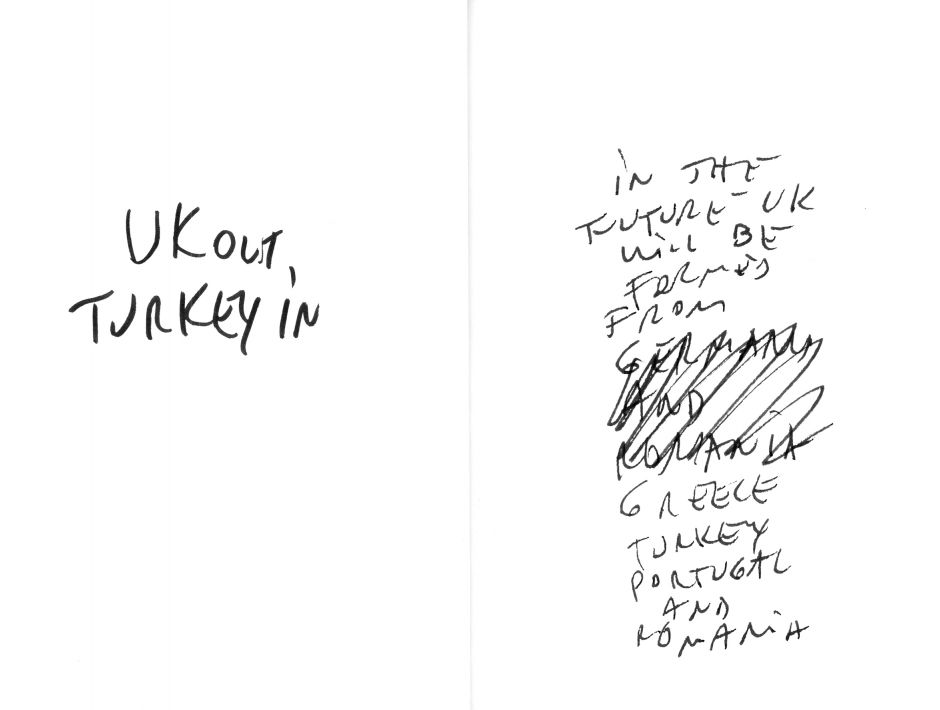 UK OUT,
TURKEY IN
IN THE
FUTURE UK
WILL BE
FORMED
FROM
GERMANY
AND
ROMANIA
GREECE
TURKEY
PORTUGAL
AND
ROMANIA